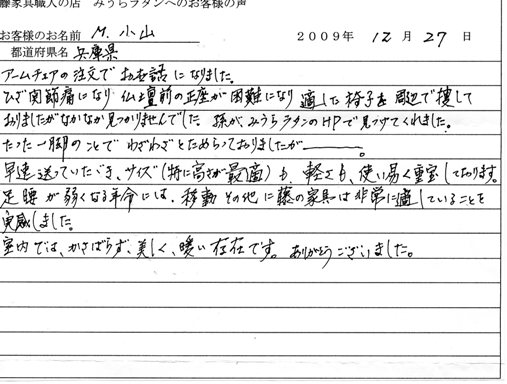 籐家具職人の店 みうらラタンへのお客様の声
お客様のお名前 M.小山 2009年 12月 27日
都道府県名 兵庫県
アームチェアの注文でお世話になりました。
ひざ関節痛になり仏壇前の正座が困難になり適した椅子を周辺で捜して
おりましたがなかなか見つかりませんでした 孫がみうらラタンのHPで見つけてくれました。
たった一脚のことでわざわざとためらっておりましたが――。
早速送っていただき、サイズ(特に高さが最適)も、軽さも、使い易く重宝しております。
足腰が弱くなる年令には、移動その他に籐の家具は非常に適していることを
実感しました。
室内では、かさばらず、美しく、暖い存在です。ありがとうございました。